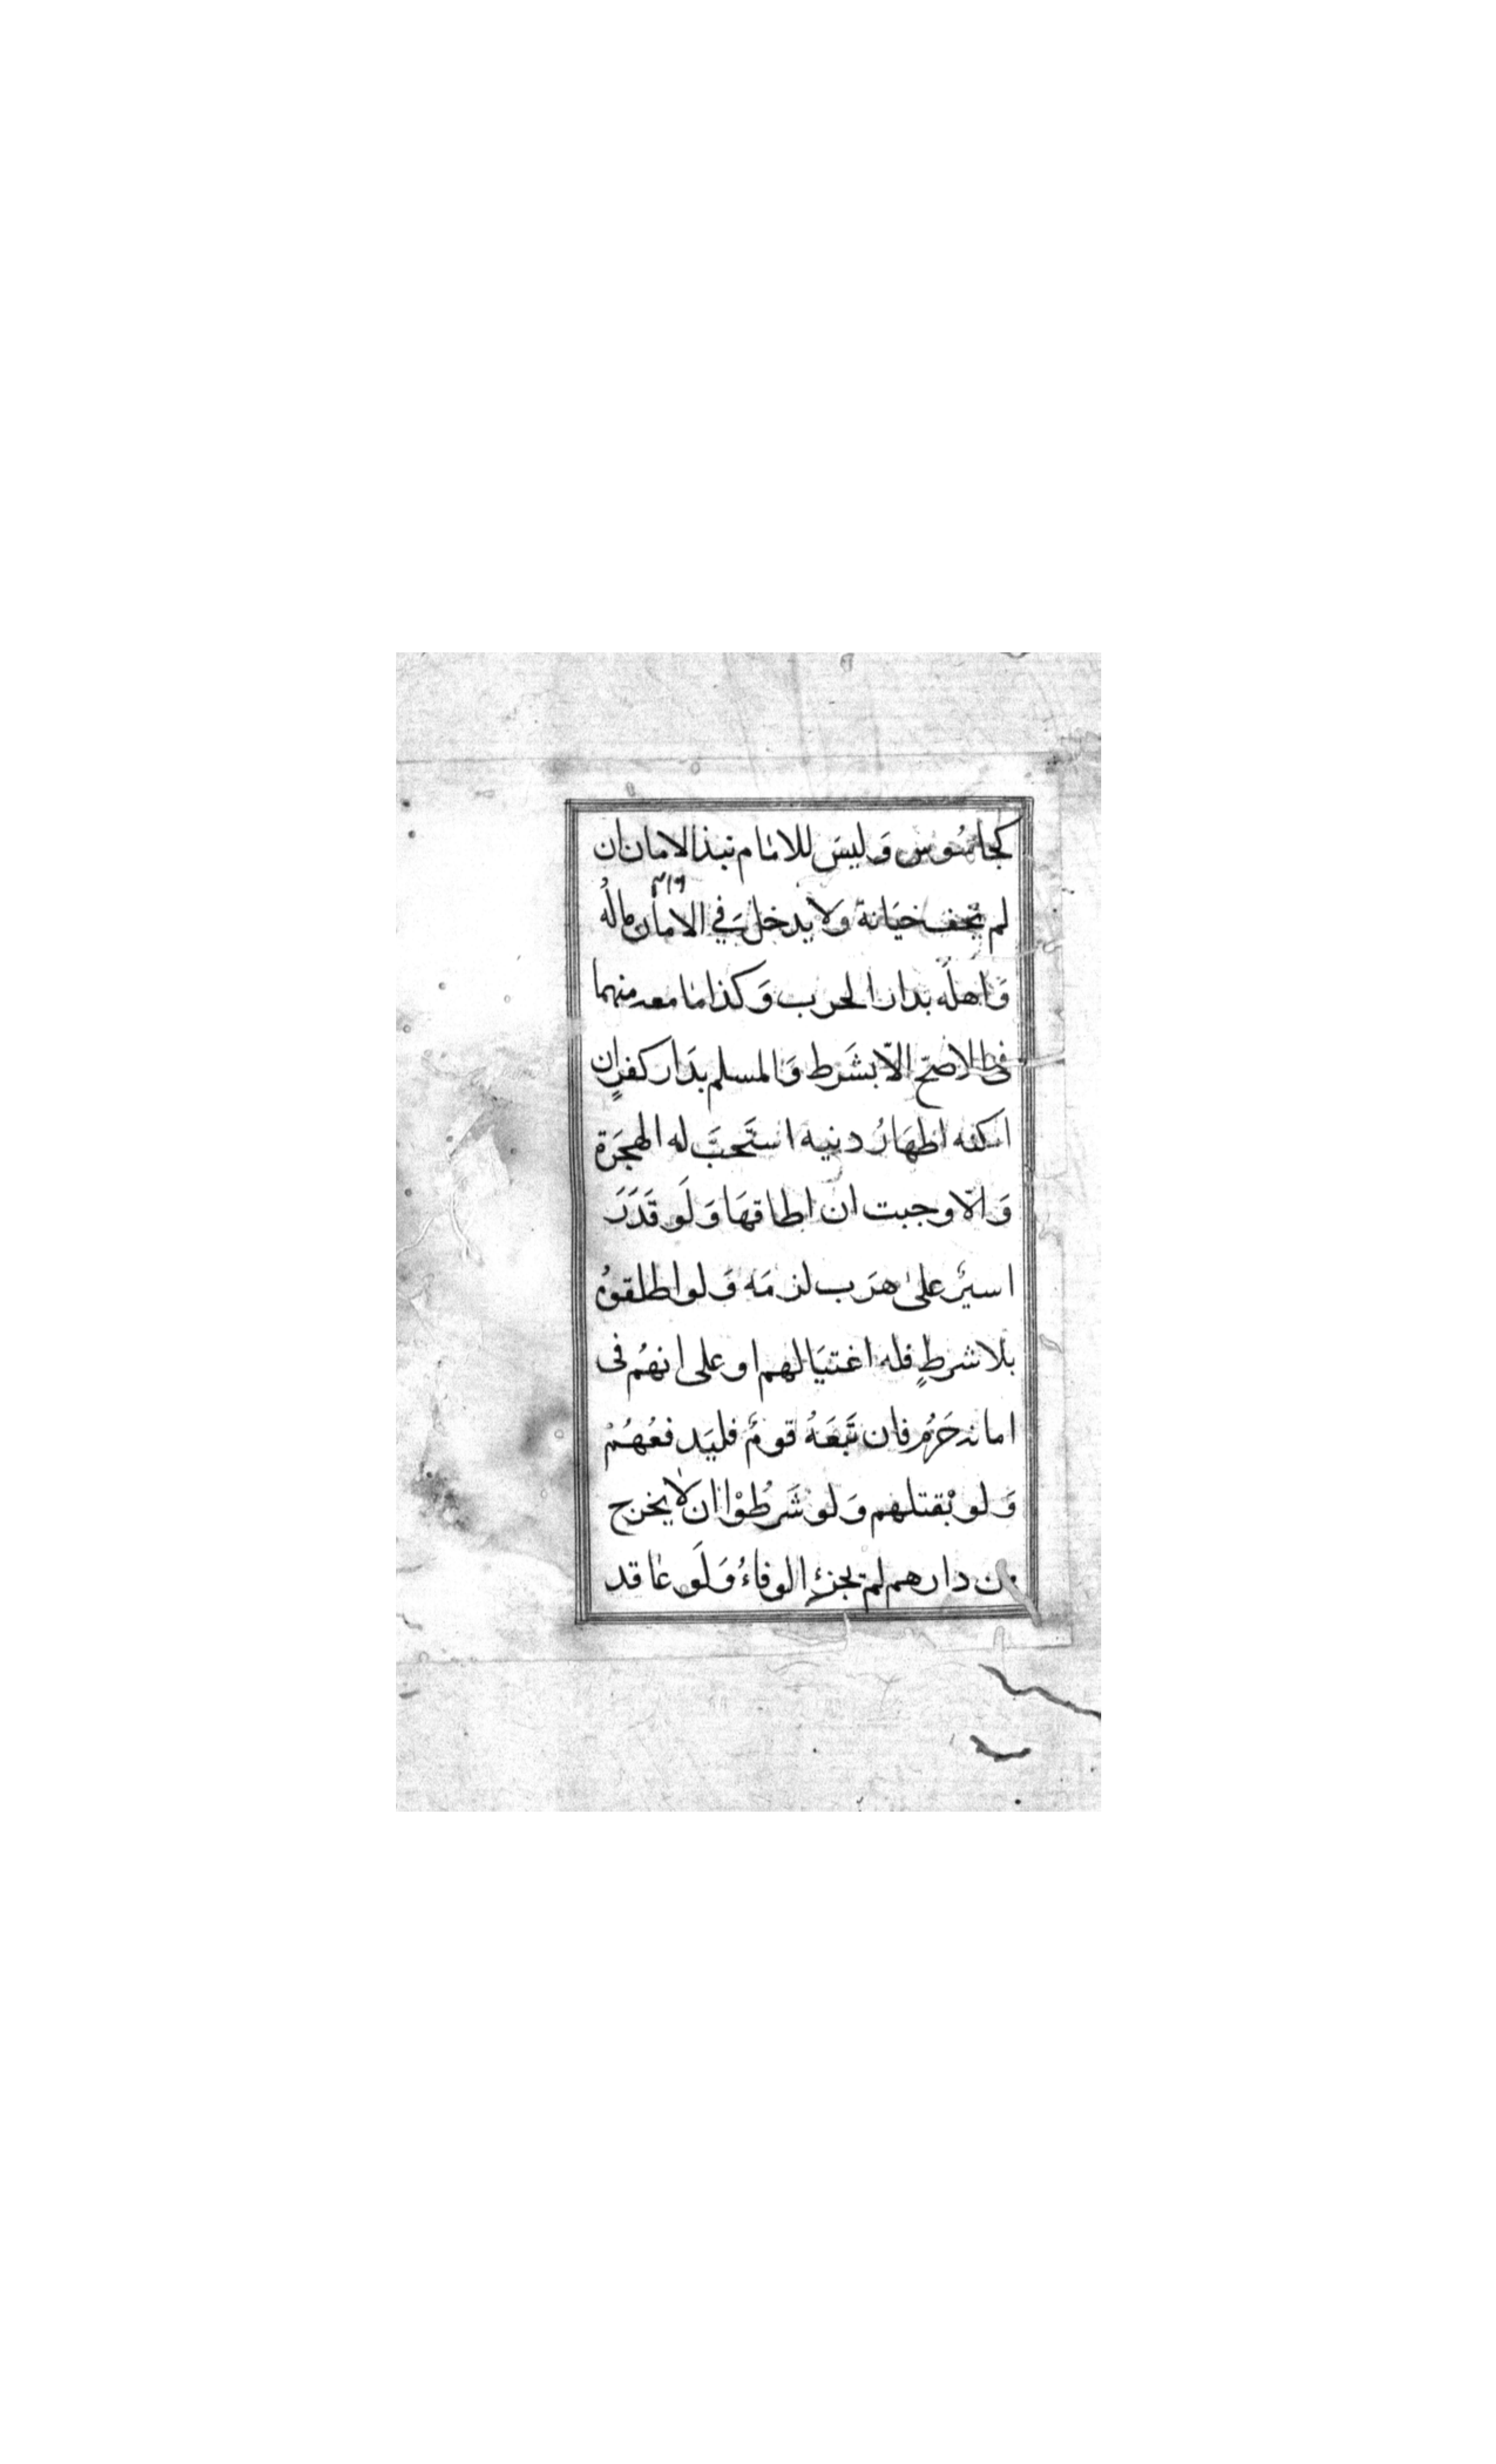 كجاسُوس وَليسَ للامَام نبذ الامان ان
لم يخف خيَانة وَلا يدخل في الامان مالُهُ
وَاهله بدار الحرب وَكذا مَا معه منهما
في الاصحّ الاّ بشَرط وَالمسلم بدَار كفرٍ ان
امكنه اظهَارُ دينه استَحبَّ له الهجرَة
وَالاّ وجبت ان اطاقهَا وَلَو قَدَرَ
اسيرٌ على هرَب لزمَه وَلو اطلقوهُ
بلا شرطٍ فله اغتيَالهم او على انهُم فى
امانه حَرُم فان تبَعَهُ قومٌ فليَدفعُهُمْ
وَلو بْقتلهم وَلو شَرطُوْا ان لاَ يخرج
من دارهم لم يجز الوفاءُ وَلَو عَاقد